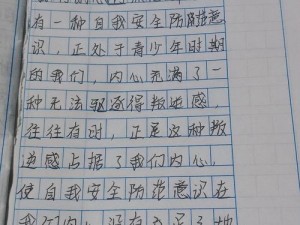 有一种自我安全防范意
识，正处于青少年时期
的我们，内心充满了一
种无法驱逐得叛逆感，
往往有时，正是这种叛
逆感占据了我们内心，
使自我安全防范意识在
我们内心没有立足之地